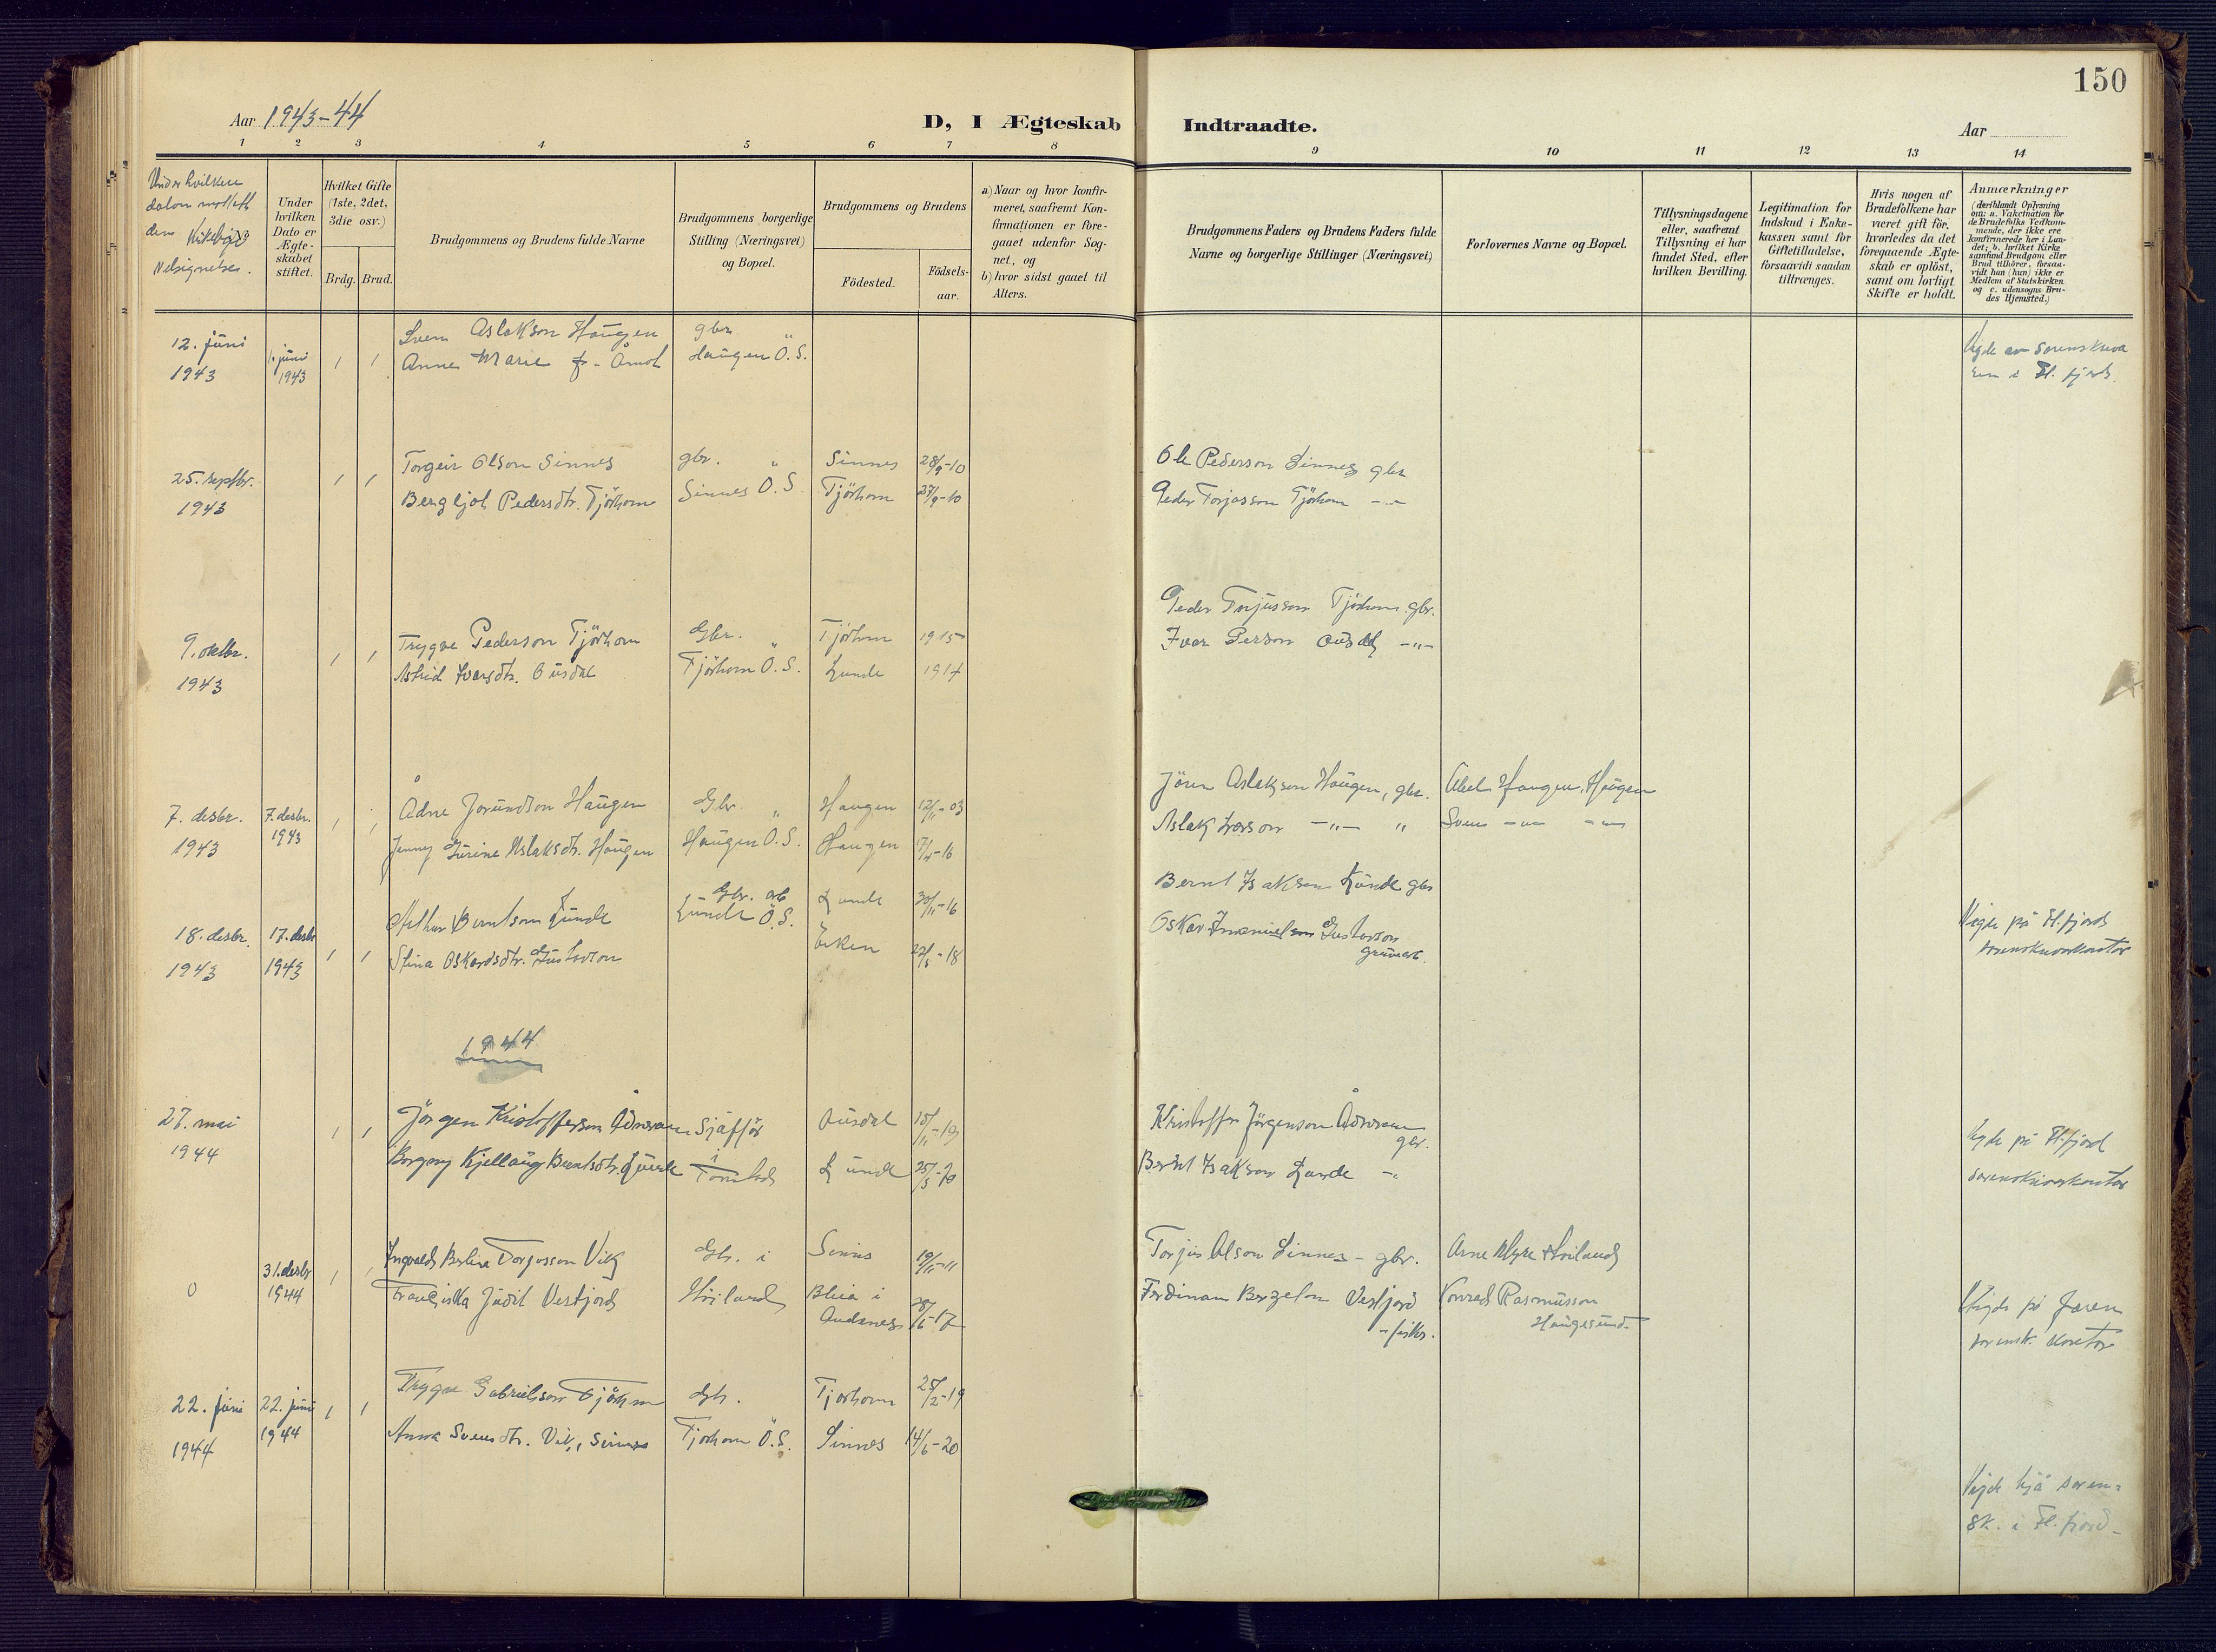 150
Aar 1943-44
D, I Ægteskab Indtraadte.
Aar
1 2 3 4 5 6 7 8 9 10 11 12 13 14
Under hvilken
Under
hvilken
Dato er
Ægte-
skabet
stiftet.
Hvilket Gifte
(1ste, 2det,
3die osv.)
Brdg. Brud.
Brudgommens og Brudens fulde Navne
Brudgommens borgerlige
Stilling (Næringsvei)
og Bopæl.
Brudgommens og Brudens
Födested.
Födsels-
aar.
a) Naar og hvor konfir-
meret, saafremt Kon-
firmationen er fore-
gaaet udenfor Sog-
net, og
b) hvor sidst gaaet til
Alters.
Brudgommens Faders og Brudens Faders fulde
Navne og borgerlige Stillinger (Næringsvei)
Forlovernes Navne og Bopæl.
Tillysningsdagene
eller, saafremt
Tillysning ei har
fundet Sted, efter
hvilken Bevilling.
Legitimation for
Indskud i Enke-
kassen samt for
Giftetilladelse,
forsaavidt saadan
tiltrænges.
Hvis nogen af
Brudefolkene har
været gift för,
hvorledes da det
foregaaende Ægte-
skab er oplöst,
samt om lovligt
Skifte er holdt.
Anmærkninger
(deriblandt Oplysning
om: a. Vakcination for
de Brudefolks Vedkom-
mende, der ikke ere
konfirmerede her i Lan-
det; b. hvilket Kirke
samfund Brudgom eller
Brud tilhörer, forsaa-
vidt han (hun) ikke er
Medlem af Statskirken
og c. udensogns Bru-
des Hjemsted.)
12. juni 1. juni 1 1 Svein Aslakson Haugen gbr. "
1943 1943 Anna Marie f. Åmot Haugen Ö.S.
Vigde av sorenskriva
ren i Fl. fjord.
25. septbr. 1 1 Torgeir Olson Sinnes gbr. " Sinnes 28/9-10 Ole Pederson Sinnes gbr
1943 Bergljot Pedersdtr. Tjörhom Sinnes Ö.S. Tjörhom 27/9-10 Peder Torjusson Tjörhom -"-
9. oktbr. 1 1 Trygve Pederson Tjörhom Gbr. " Tjörhom 1915 Peder Torjusson Tjörhom gbr.
1943 Astrid Ivarsdtr. Ousdal Tjörhom Ö.S. Lunde 1917 Ivar Person Ousdal -"-
7. desbr. 7. desbr. 1 1 Ådne Jorundson Haugen Gbr. " Haugen 12/11-03 Jören Aslakson Haugen, gbr. Haugen, Haugen
1943 1943 Jenny Gurine Aslaksdtr. Haugen Haugen Ö.S. Haugen 17/4-16 Aslak -"- " Svein -"- -"-
18. desbr. 17. desbr 1 1 Arthur Berntson Lunde Gbr. arb Lunde Ö.S. Lunde 30/11-16 Bernt Isakson Lunde gbr
1943 1943 Stina Oskarsdtr. Gustavson 22/5-18 Oskar Gustavson
Vigde på Fl.fjord
sorenskrivarkontor
1944
27. mai 1 1 Jörgen Kristofferson Ådneram Sjåfför Ousdal 15/11-19 Kristoffer Jörgenson Ådneram gbr.
1944 Borgny Kjellaug Berntsdtr. Lunde i Tonstad Lunde 25/5-20 Bernt Isakson Lunde -"-
Vigde på Fl.fjord
sorenskrivarkontor
0 31. desbr 1 1 Ingvald Torjusson Vik Gbr. i Sinnes 19/11-11 Torjus Olson Sinnes - gbr. Arne Myre Höiland
1944 Franciska Judit Vestfjord Höiland Bleik i Andenes 28/6-17 Ferdinan Vestfjord - fisker. Konrad Rasmusson
Haugesund
Vigde på Jæren
sorenskr. kontor
22. juni 22. juni 1 1 Trygve Gabrielson Tjörhom Gbr. Tjorhom 25/2-19
1944 1944 Anna Sveinsdtr. Vik, Sinnes Tjorhom Ö.S. Sinnes 14/6-20
Vigde hjå soren-
skr. i Fl. fjord-